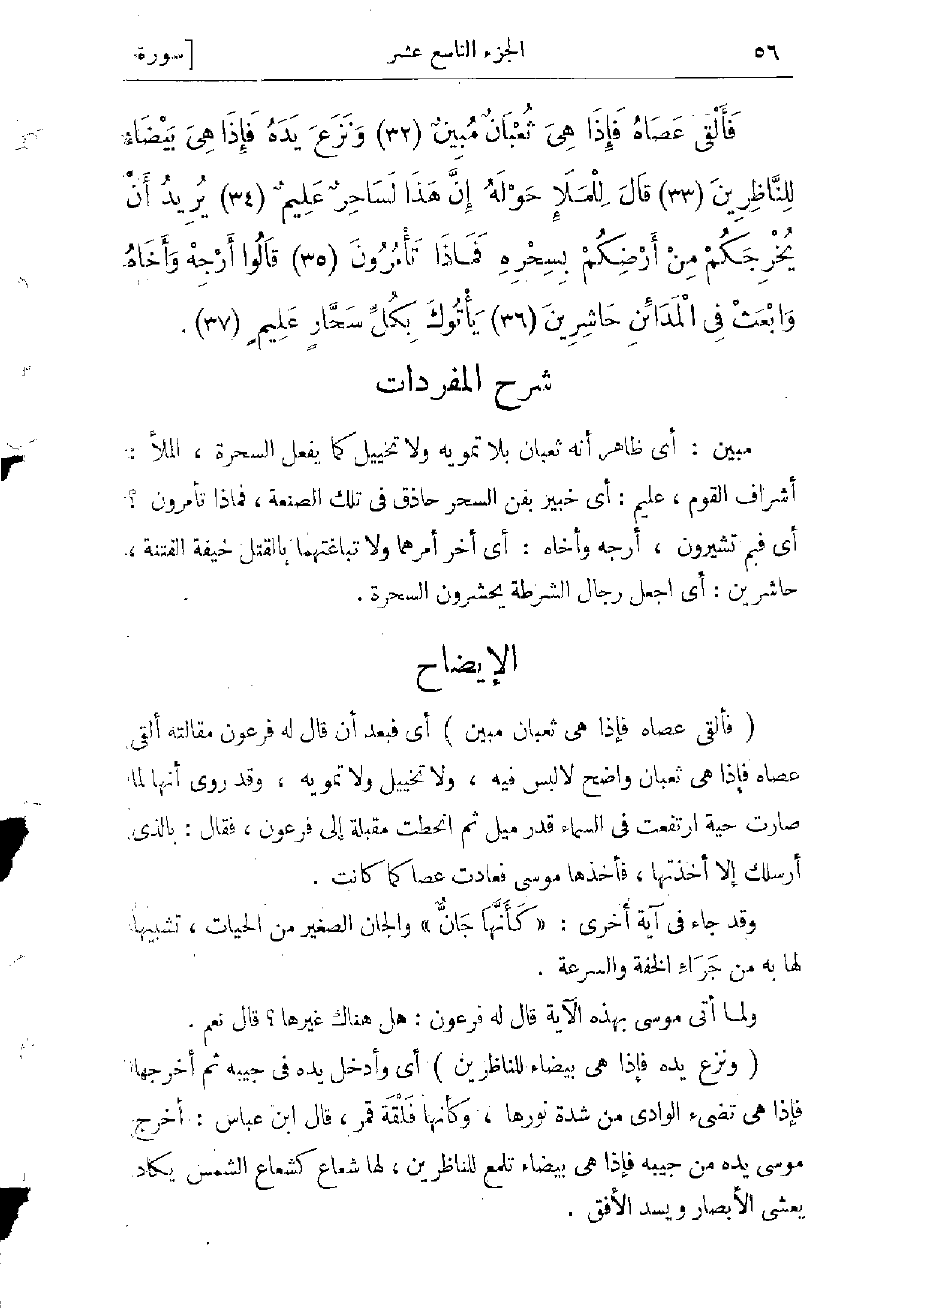 ٥٦ الجزء التاسع عشر [سورة
فَأَلْقَى عَصَاهُ فَإِذَا هِىَ ثُعْبَانٌ مُبِينٌ (٣٢) وَنَزَعَ يَدَهُ فَإِذَا هِىَ بَيْضَاءُ
لِلنَّاظِرِينَ (٣٣) قَالَ لِلْمَلَإِ حَوْلَهُ إِنَّ هَذَا لَسَاحِرٌ عَلِيمٌ (٣٤) يُرِيدُ أَنْ
يُخْرِجَكُمْ مِنْ أَرْضِكُمْ بِسِحْرِهِ فَمَاذَا تَأْمُرُونَ (٣٥) قَالُوا أَرْجِهْ وَأَخَاهُ
وَابْعَثْ فِى الْمَدَائنِ حَاشِرِينَ (٣٦) يَأْتُوكَ بِكُلِّ سَحَّارٍ عَلِيمٍ (٣٧) .
شرح المفردات
مبين : أى ظاهر أنه ثعبان بلا تمويه ولا تخييل كما يفعل السحرة ، الملأ :
أشراف القوم ، عليم : أى خبير بفن السحر حاذق فى تلك الصنعة ، فماذا تأمرون ؟
أى فبم تشيرون ، أرجه وأخاه : أى أخر أمرهما ولا تباغتهما بالقتل خيفة الفتنة ،
حاشرين : أى اجعل رجال الشرطة يحشرون السحرة .
الإيضاح
( فألقى عصاه فإذا هى ثعبان مبين ) أى فبعد أن قال له فرعون مقالته ألقى
عصاه فإذا هى ثعبان واضح لا لبس فيه ، ولا تخييل ولا تمويه ، وقد روى أنها لما
صارت حية ارتفعت فى السماء قدر ميل ثم انحطت مقبلة إلى فرعون ، فقال : بالذى
أرسلك إلا أخذتها ، فأخذها موسى فعادت عصا كما كانت .
وقد جاء فى آية أخرى : « كَأَنَّهَا جَانٌّ » والجان الصغير من الحيات ، تشبيها
لها به من جَرَاءِ الخفة والسرعة .
ولما أتى موسى بهذه الآية قال له فرعون : هل هناك غيرها ؟ قال نعم .
( ونزع يده فإذا هى بيضاء للناظرين ) أى وأدخل يده فى جيبه ثم أخرجها
فإذا هى تضىء الوادى من شدة نورها ، وكأنها فَلْقَة قمر ، قال ابن عباس : أخرج
موسى يده من جيبه فإذا هى بيضاء تلمع للناظرين ، لها شعاع كشعاع الشمس يكاد
يعشى الأبصار ويسد الأفق .